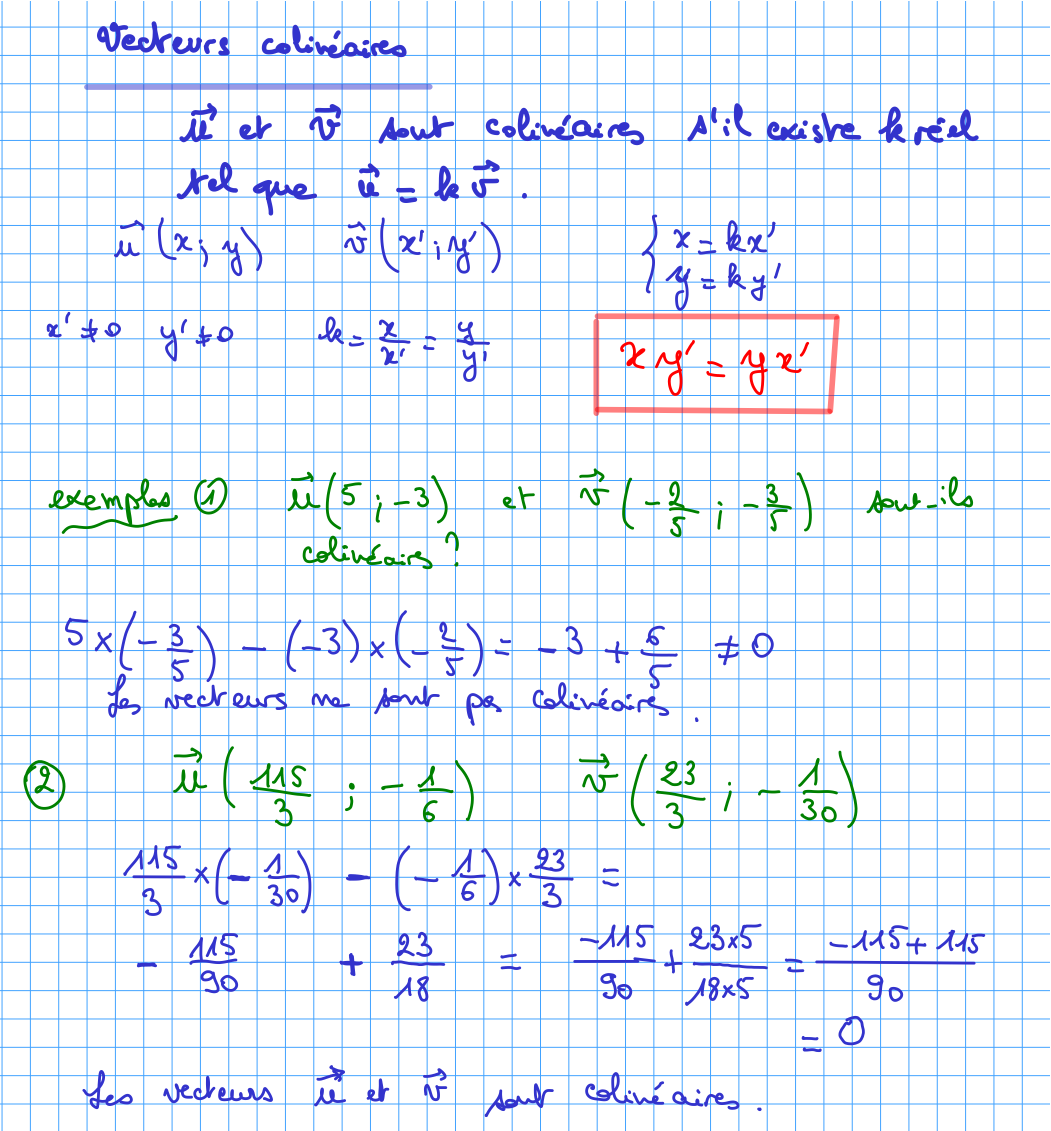 Vecteurs colinéaires
u⃗ et v⃗ sont colinéaires s'il existe k réel
tel que u⃗ = k v⃗.
u⃗ (x ; y) v⃗ (x' ; y') { x = kx'
y = ky'
x' ≠ 0 y' ≠ 0 k = x/x' = y/y' x y' = y x'
exemples ① u⃗ (5 ; -3) et v⃗ (-2/5 ; -3/5) sont-ils
colinéaires ?
5 × (-3/5) - (-3) × (-2/5) = -3 + 6/5 ≠ 0
Les vecteurs ne sont pas colinéaires.
② u⃗ (115/3 ; -1/6) v⃗ (23/3 ; -1/30)
115/3 × (-1/30) - (-1/6) × 23/3 =
- 115/90 + 23/18 = -115/90 + 23×5/18×5 = -115+115/90
= 0
Les vecteurs u⃗ et v⃗ sont colinéaires.